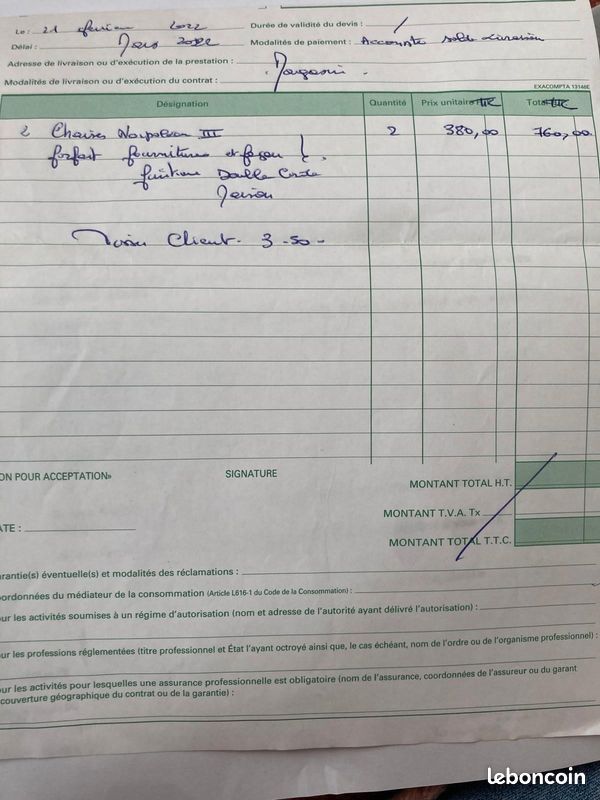 Le : 21 février 2022 Durée de validité du devis : /
Délai : Mars 2022 Modalités de paiement : Accompte solde Livraison
Adresse de livraison ou d'exécution de la prestation :
Modalités de livraison ou d'exécution du contrat : Magasin.
EXACOMPTA 13148E
Désignation Quantité Prix unitaire TTC Total TTC
2 Chaises Napoléon III 2 380,00 760,00
forfait fournitures et façon
finition Double Corde
Client - 3.50 -
ON POUR ACCEPTATION» SIGNATURE
MONTANT TOTAL H.T.
MONTANT T.V.A. Tx
ATE :
MONTANT TOTAL T.T.C.
arantie(s) éventuelle(s) et modalités des réclamations :
oordonnées du médiateur de la consommation (Article L616-1 du Code de la Consommation) :
ur les activités soumises à un régime d'autorisation (nom et adresse de l'autorité ayant délivré l'autorisation) :
ur les professions réglementées (titre professionnel et État l'ayant octroyé ainsi que, le cas échéant, nom de l'ordre ou de l'organisme professionnel) :
ur les activités pour lesquelles une assurance professionnelle est obligatoire (nom de l'assurance, coordonnées de l'assureur ou du garant
couverture géographique du contrat ou de la garantie) :
leboncoin